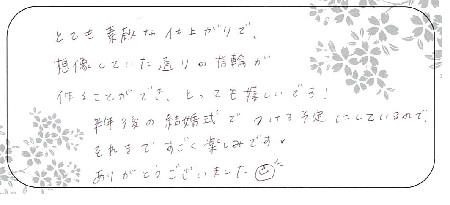 とても素敵な仕上がりで、
想像していた通りの指輪が
作ることができ、とっても嬉しいです!
半年後の結婚式でつける予定にしているので、
それまですごく楽しみです。
ありがとうございました